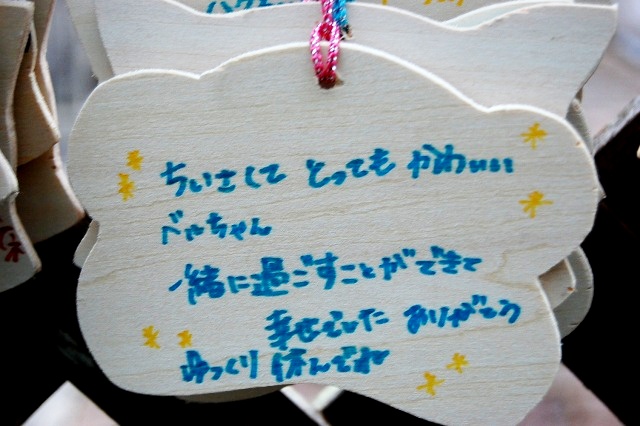 ちいさくて とっても かわいい
べやちゃん
一緒に過ごすことができて
幸せでした ありがとう
ゆっくり 休んでね